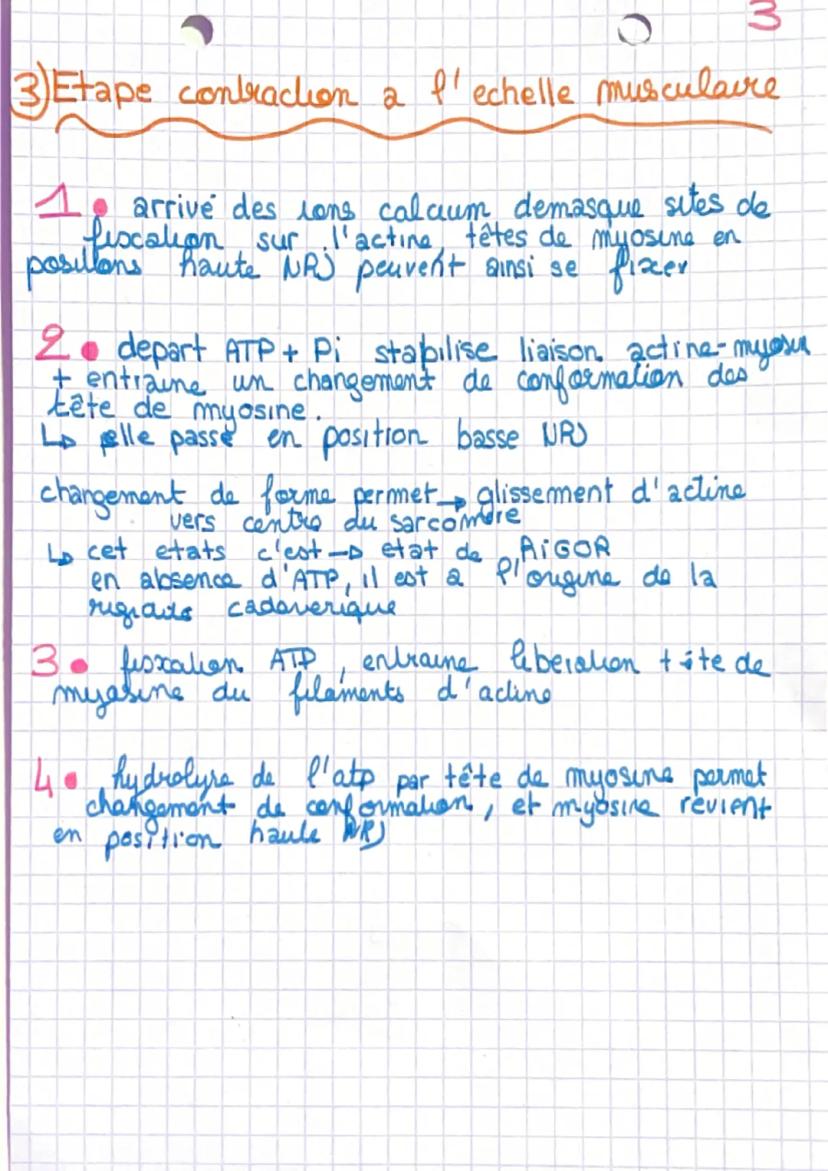 3
3) Etape contraction a l'echelle musculaire
1. arrivé des ions calcium demasque sites de
fixcation sur l'actine, têtes de myosine en
positions haute NRJ peuvent ainsi se fixer
2. depart ATP + Pi stabilise liaison actine-myosin
+ entraine un changement de conformation des
tête de myosine.
↳ elle passe en position basse NRJ
changement de forme permet → glissement d'actine
vers centre du sarcomère
↳ cet etats c'est → etat de RiGOR
en absence d'ATP, il est a l'origine de la
cadaverique
3. fixcation ATP, entraine liberation tête de
myosine du filaments d'actine
4. hydrolyse de l'atp par tête de myosine permet
changement de conformation, et myosine revient
en position haute NRJ